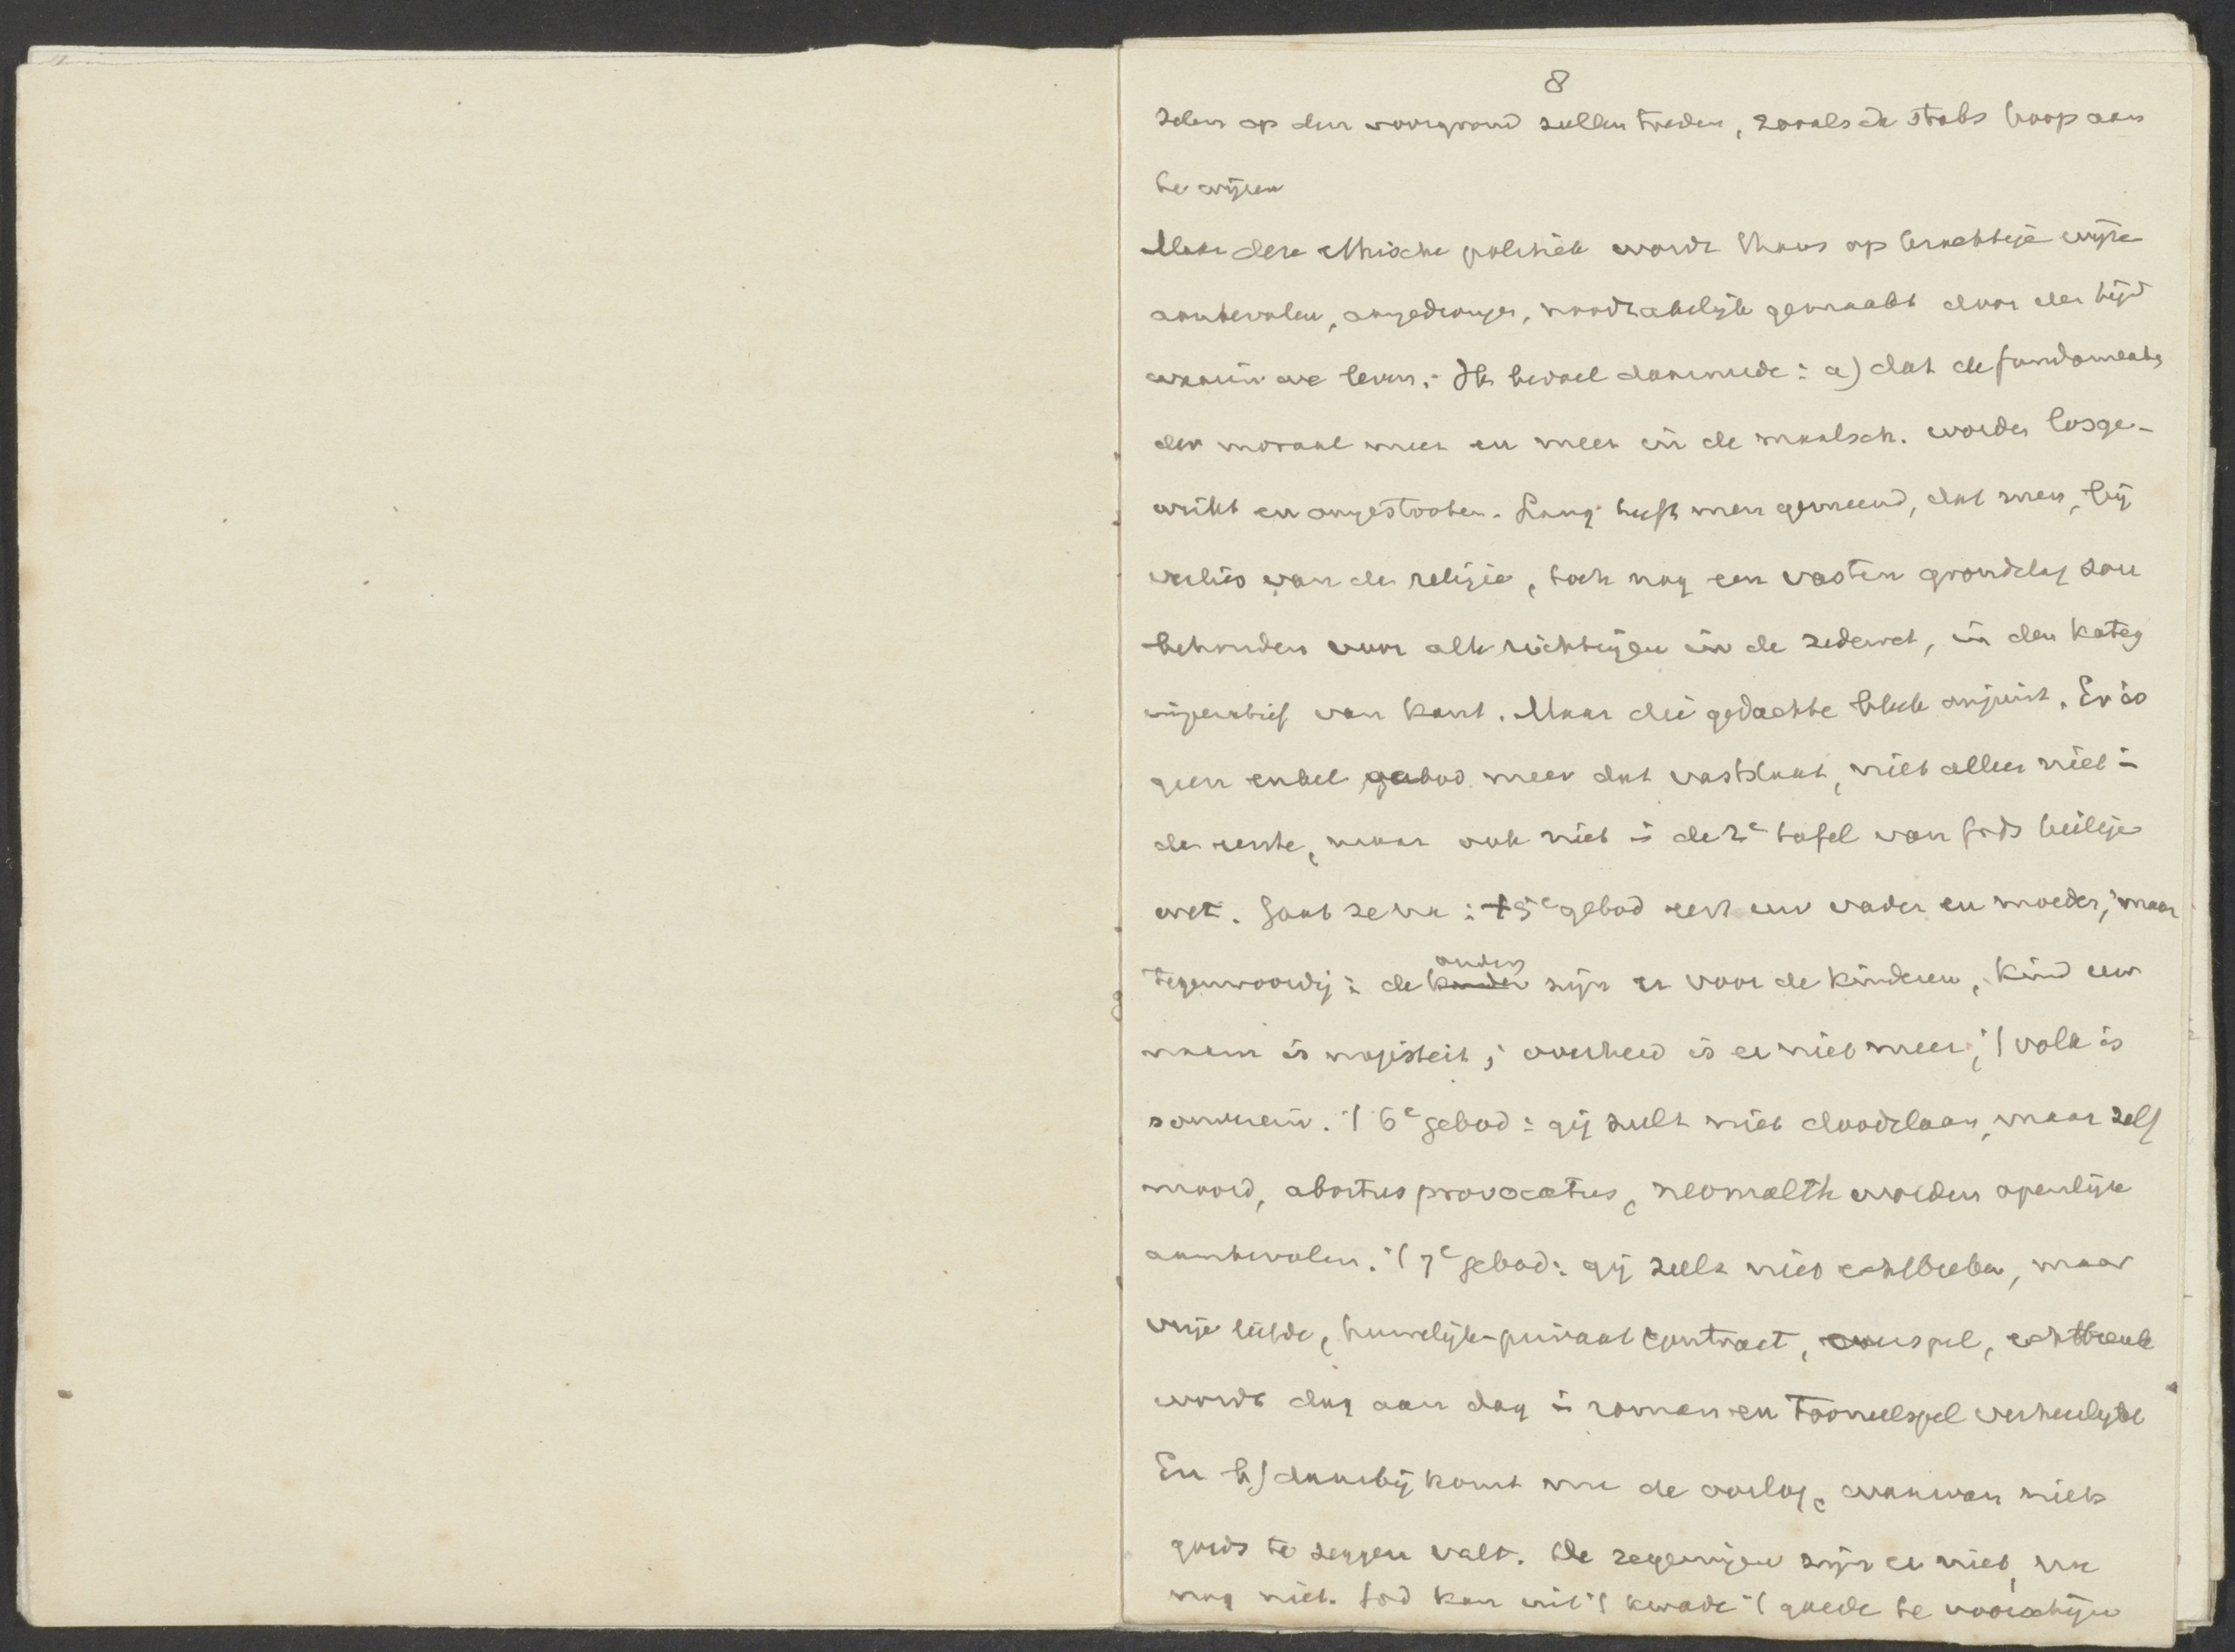 8
zelen op den voorgrond zullen treden, zooals ik straks hoop aan
te wijzen
Maar deze ethische politiek wordt thans op krachtige wijze
aanbevolen, aangedrongen, noodzakelijk gemaakt door den tijd
waarin we leven. Ik bedoel daarmede: a) dat de fundamenten
der moraal meer en meer in de maatsch. worden losge-
wrikt en omgestooten. Lang heeft men gemeend, dat men, bij
verlies van de religie, toch nog een vasten grondslag zou
behouden voor alle richtingen in de zedewet, in den kateg
imperatief van Kant. Maar die gedachte bleek onjuist. Er is
geen enkel gebod meer dat vaststaat, niet alleen niet in
de eerste, maar ook niet in de 2e tafel van Gods heilige
wet. Gaat ze na: 't 5e gebod eert uw vader en moeder, maar
tegenwoordig: de ouders zijn er voor de kinderen, kind uw
naam is majesteit; overheid is er niet meer; 't volk is
souverein. 't 6e gebod: gij zult niet doodslaan, maar zelf
moord, abortus provocatus, neomalth worden openlijk
aanbevolen. 't 7e gebod: gij zult niet echtbreken, maar
vrije liefde, huwelijk-privaat contract, overspel, echtbreuk
wordt dag aan dag in roman en tooneelspel verheerlijkt
En b) daarbij komt nu de oorlog, waarvan niets
goeds te zeggen valt. De zegeningen zijn er niet, nu
nog niet. God kan uit 't kwade 't goede te voorschijn